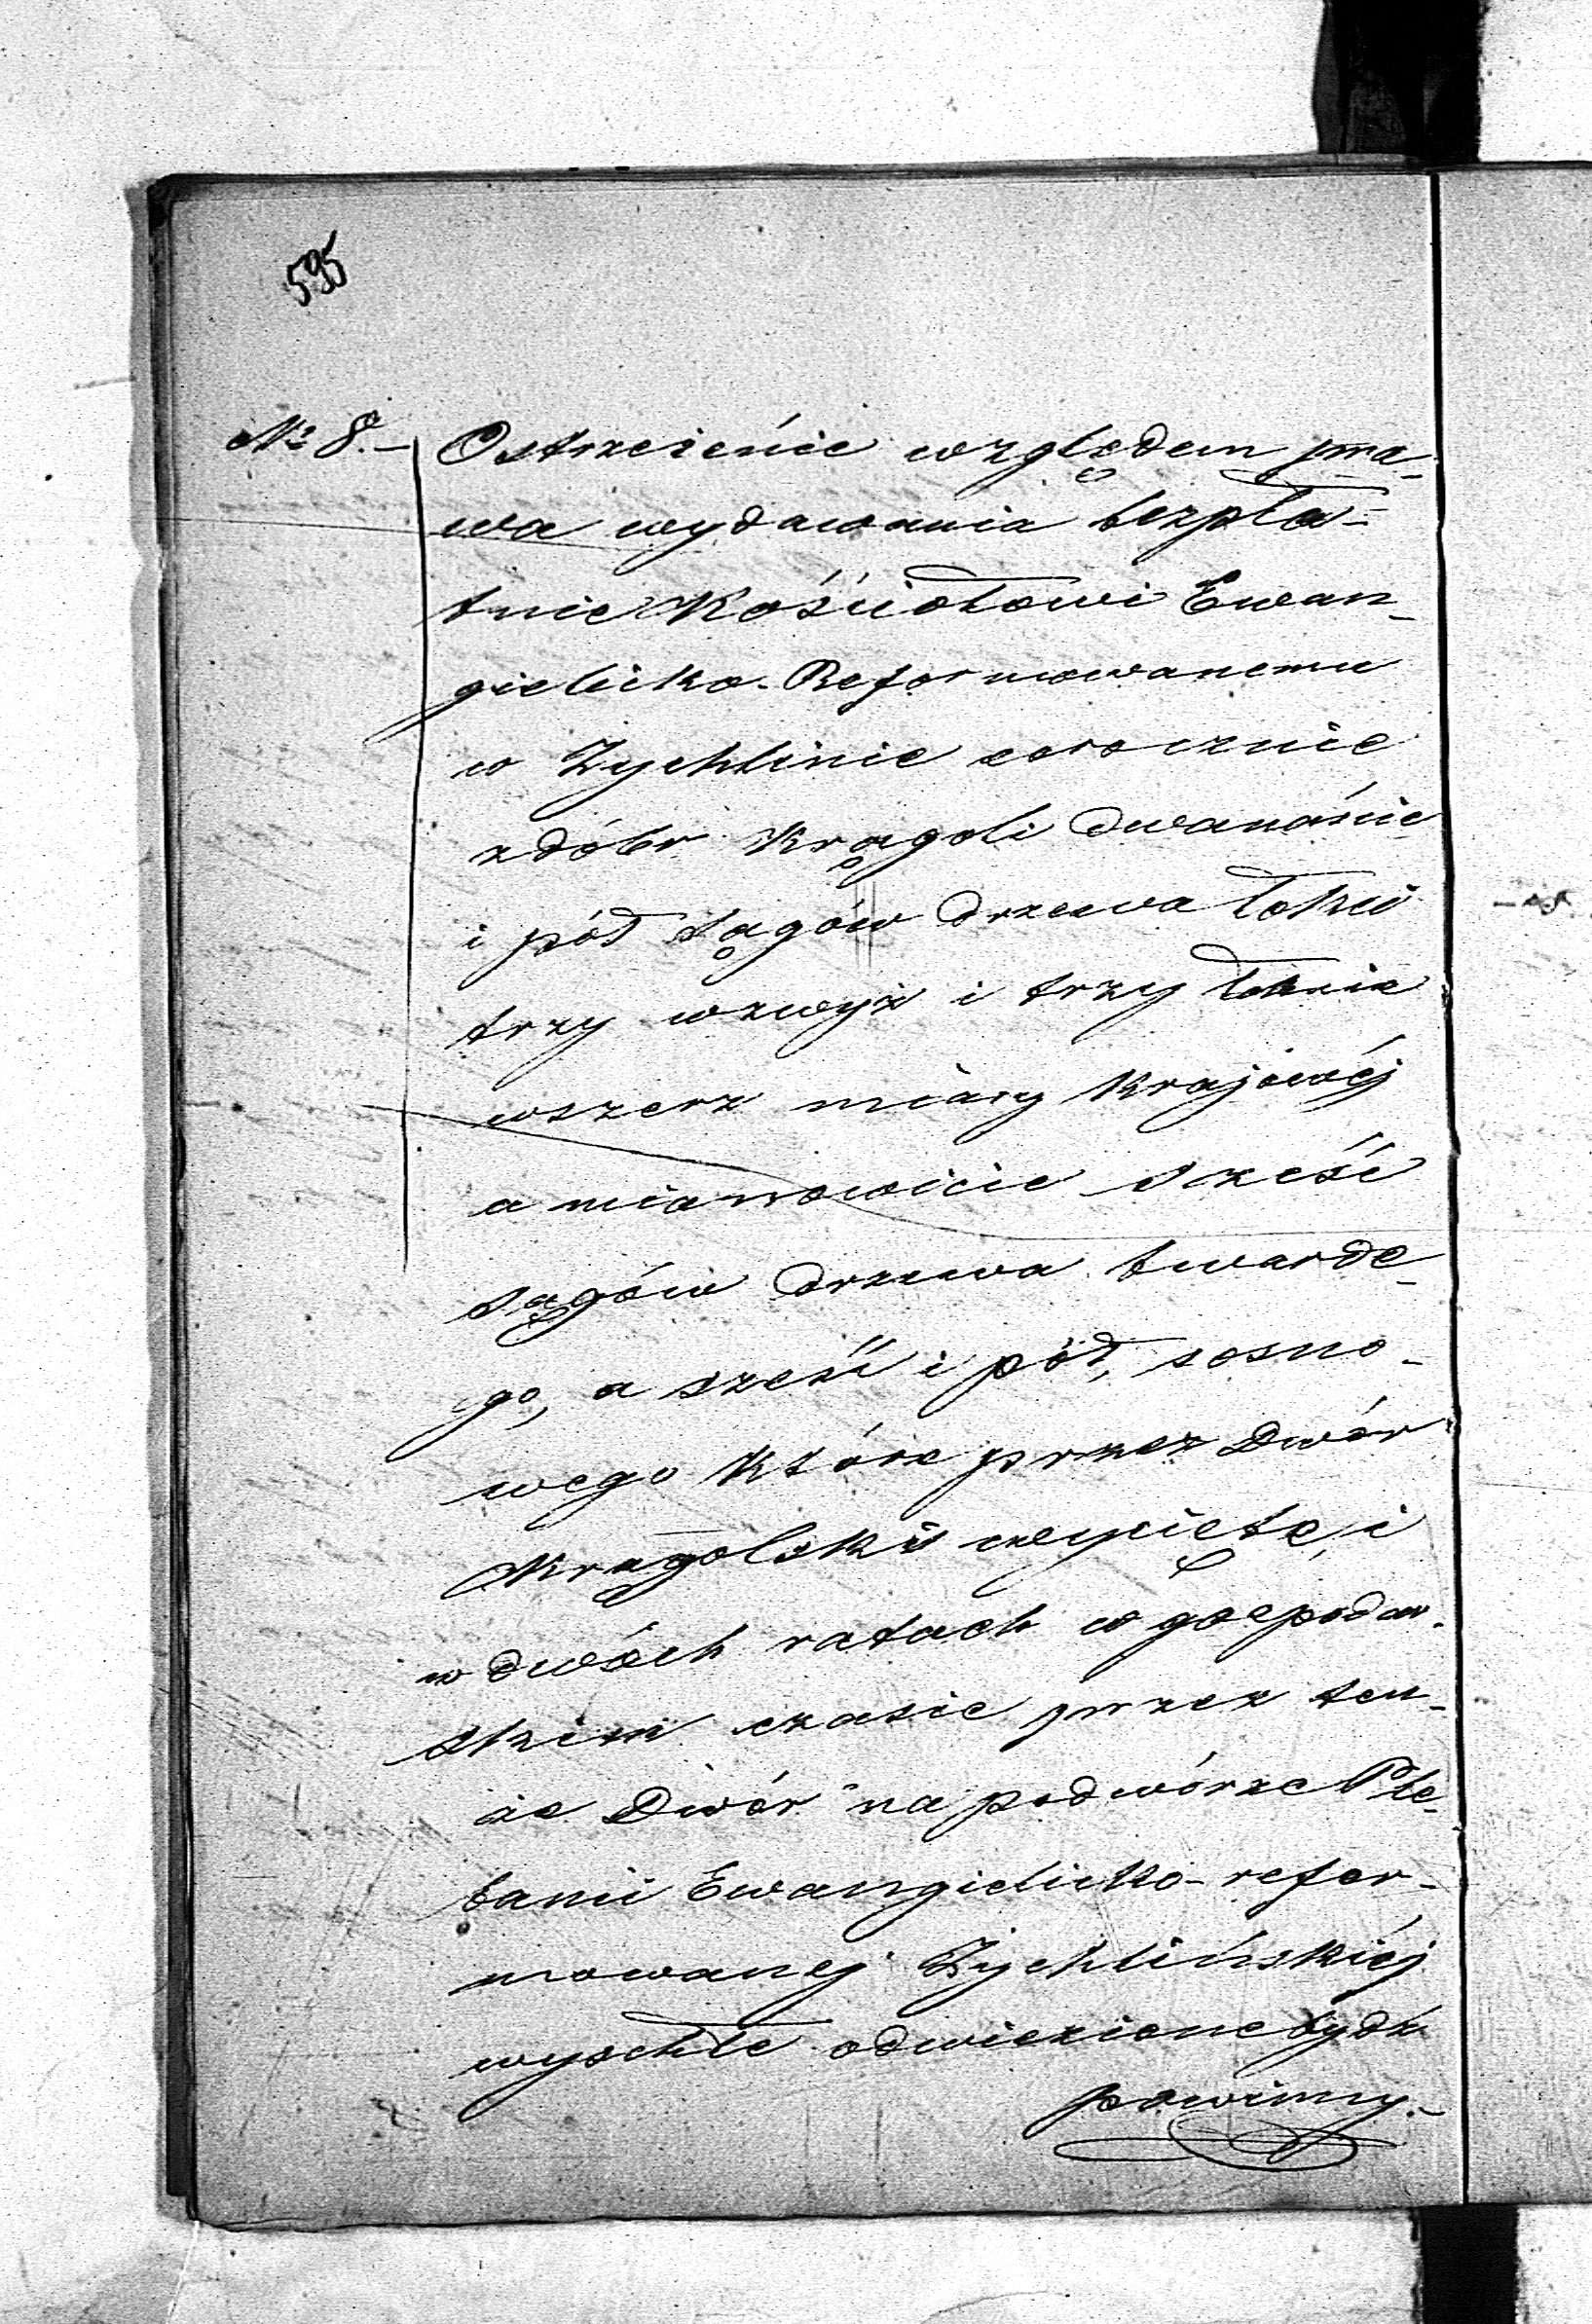 595
№ 8.- Ostrzeżenie względem pra-
wa wydawania bezpła-
tnie Kościołowi Ewan-
gielicko-Reformowanemu
w Żychlinie corocznie
z dóbr Krągoli dwanaście
i pół sągów drzewa łokci
trzy wzwyż i trzy łokcie
wszerz miary Krajowéj
a mianowicie sześć
sągów drzewa twarde-
go, a sześć i pół, sosno-
wego które przez Dwór
Krągolski wycięte, i
w dwóch ratach w gospodar-
skim czasie przez ten-
że Dwór na podwórze Ple-
banii Ewangielicko-refor-
mowanej Żychlińskiéj
wyschłe odwiezione bydź
powinny.-